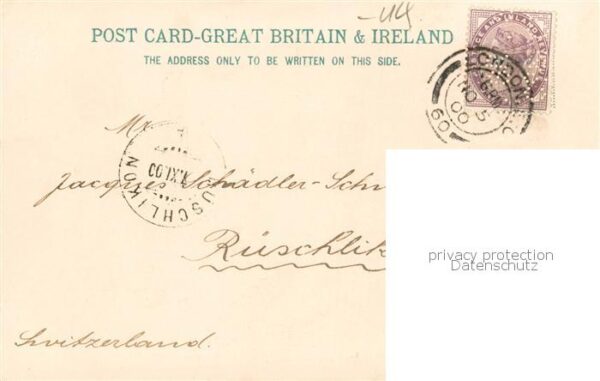 POST CARD-GREAT BRITAIN & IRELAND
THE ADDRESS ONLY TO BE WRITTEN ON THIS SIDE.
LONDON
NO 5
00
60
Mr
RÜSCHLIKON
Jacques Schädler-Sch
Rüschlik
Switzerland.
privacy protection
Datenschutz